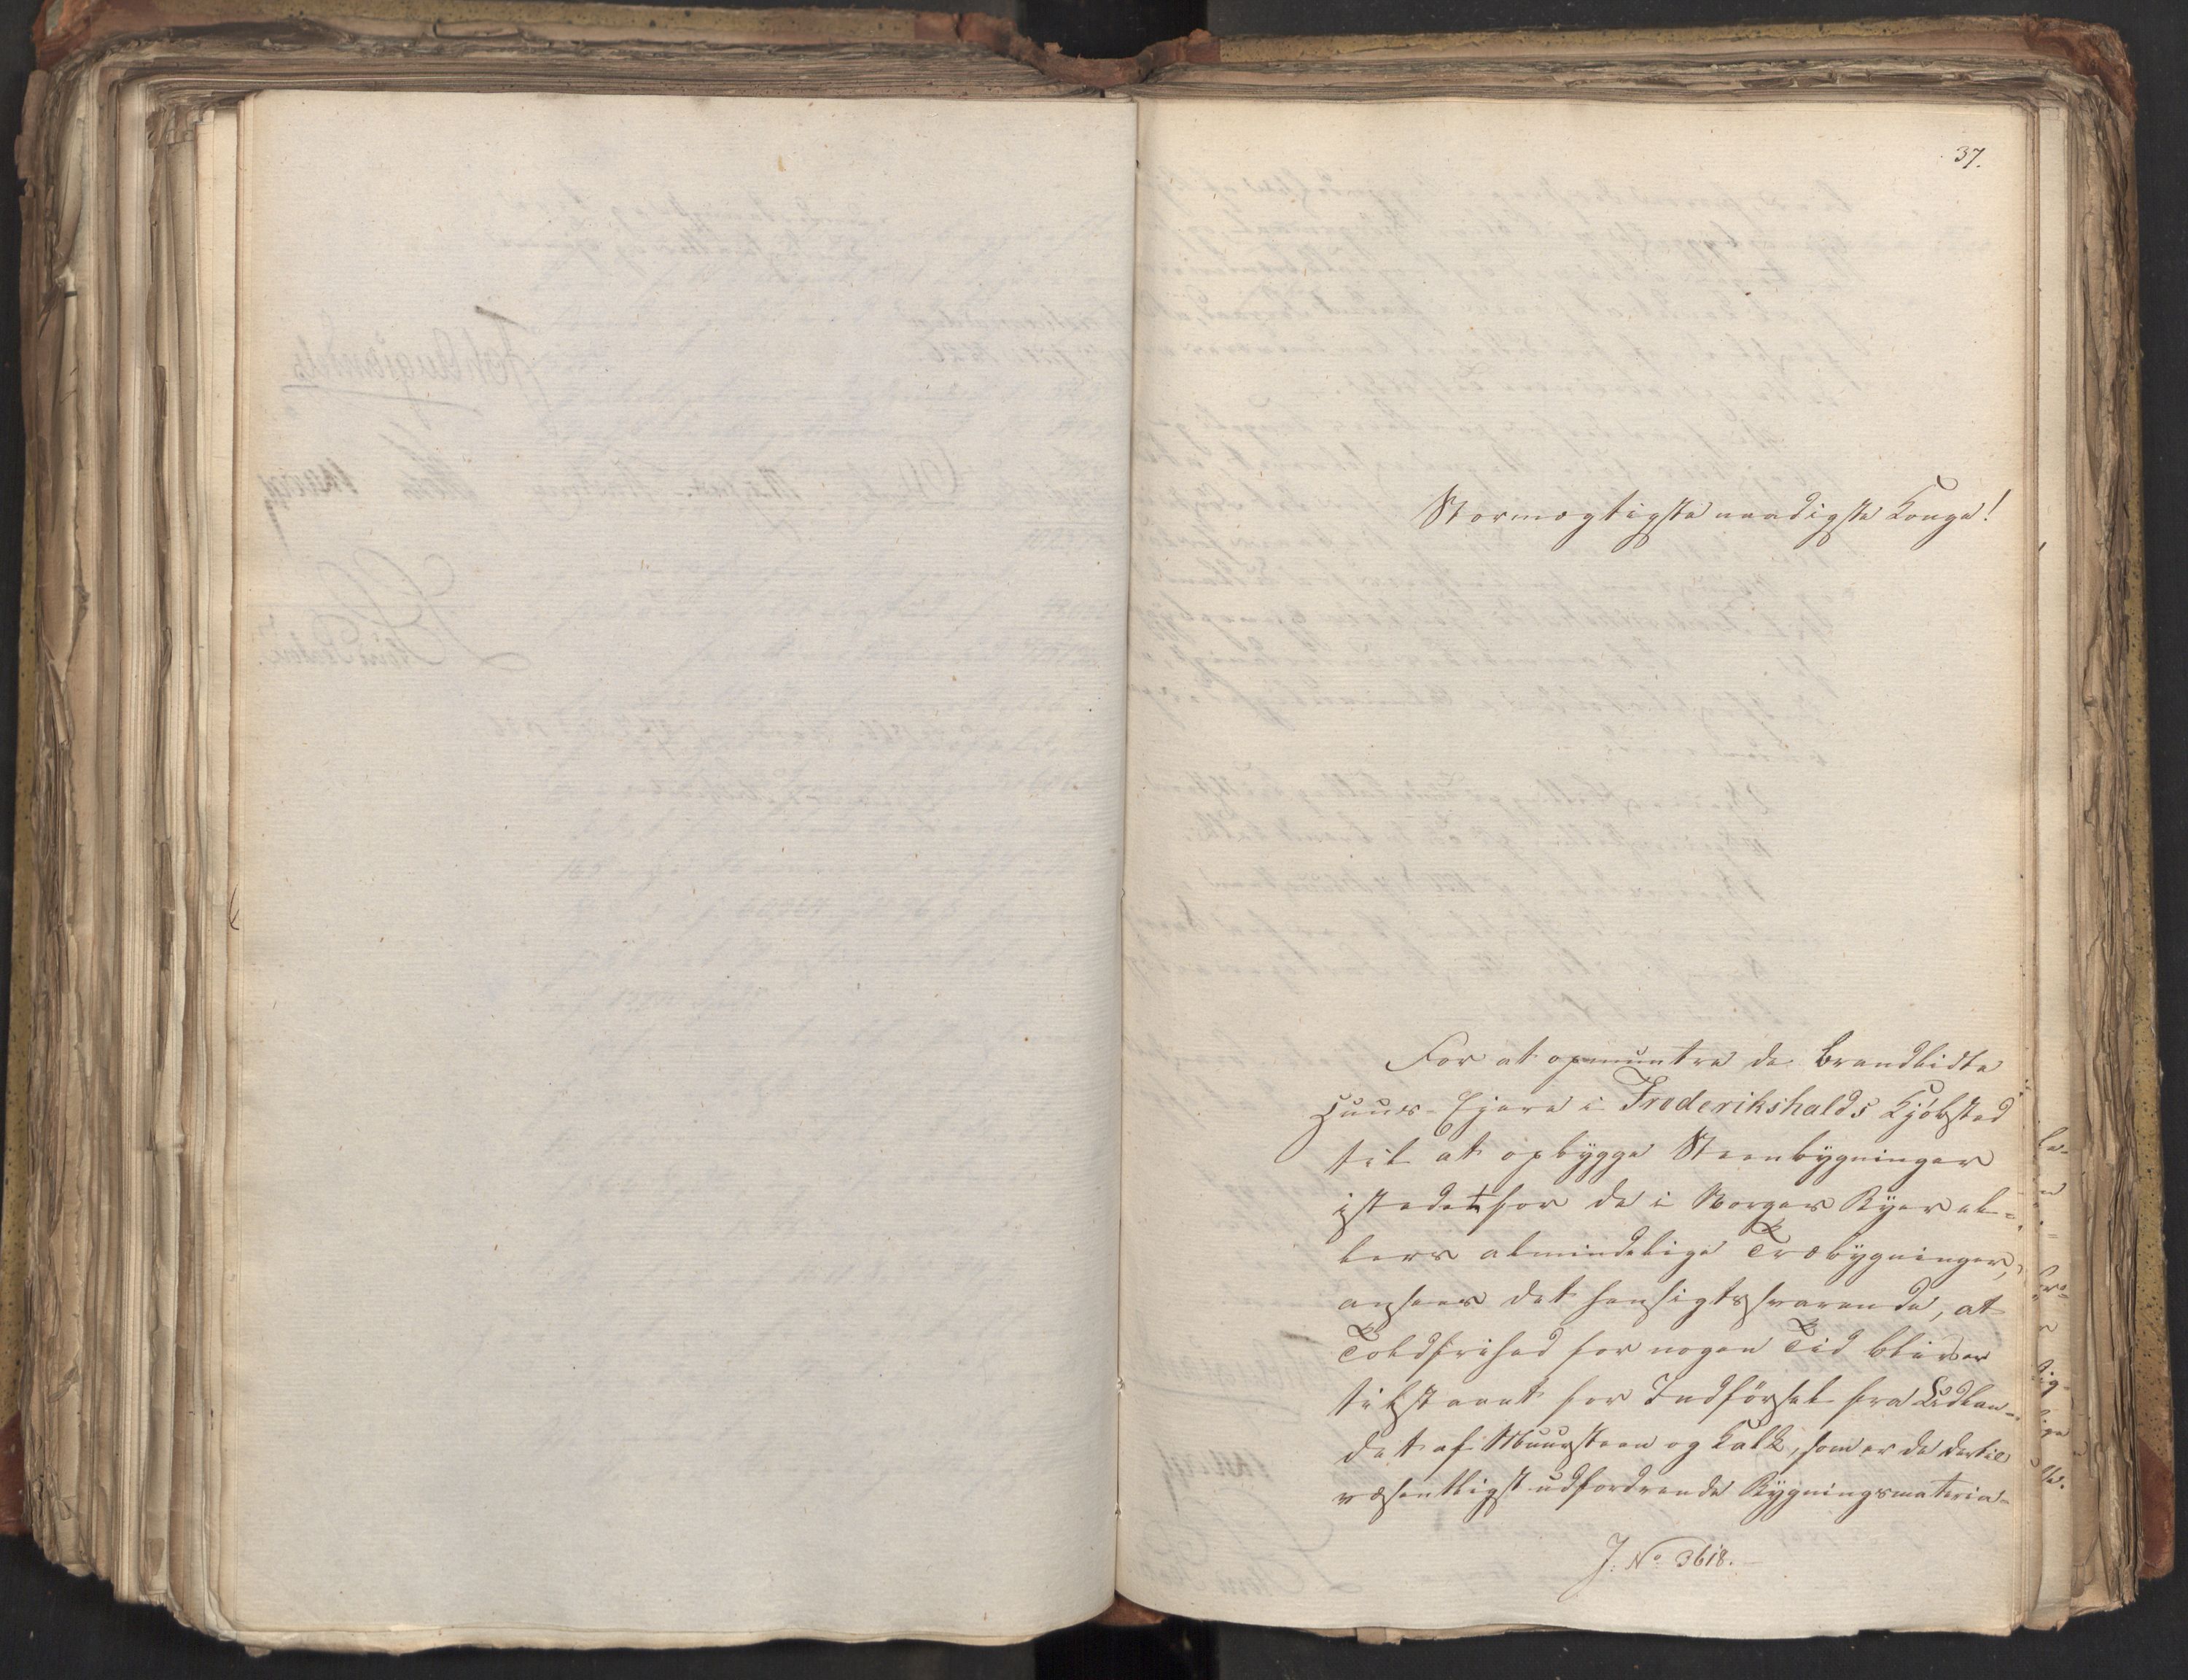 37.
Stormægtigste naadigste Konge!
For at opmuntre de Brandlidte
Huus-Ejere i Frederikshalds Kjöbstad
til at opbygge Steenbygninger
istedetfor de i Norges Byer el-
lers almindelige Træbygninger,
ansees det hensigtssvarende, at
Toldfrihed for nogen Tid bliver
tilstaaet for Indförsel fra Udlan-
det af Muursteen og Kalk, som er de dertil
væsentligst udfordrende Bygningsmateria-
J. No 3618.